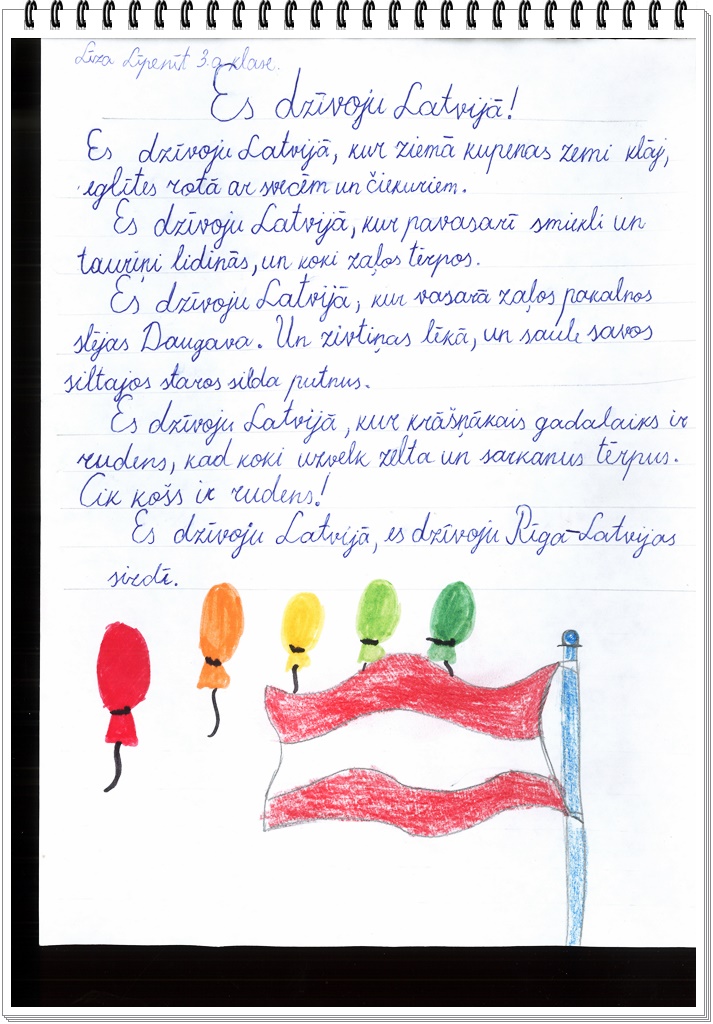 Līza Līpenīt 3.a klase.
Es dzīvoju Latvijā!
Es dzīvoju Latvijā, kur ziemā kupenas zemi klāj,
eglītes rotā ar svecēm un čiekuriem.
Es dzīvoju Latvijā, kur pavasarī smiekli un
tauriņi lidinās, un koki zaļos tērpos.
Es dzīvoju Latvijā, kur vasarā zaļos pakalnos
slējas Daugava. Un zivtiņas lēkā, un saule savos
siltajos staros silda putnus.
Es dzīvoju Latvijā, kur krāšņākais gadalaiks ir
rudens, kad koki uzvelk zelta un sarkanus tērpus.
Cik košs ir rudens!
Es dzīvoju Latvijā, es dzīvoju Rīgā-Latvijas
sirdī.